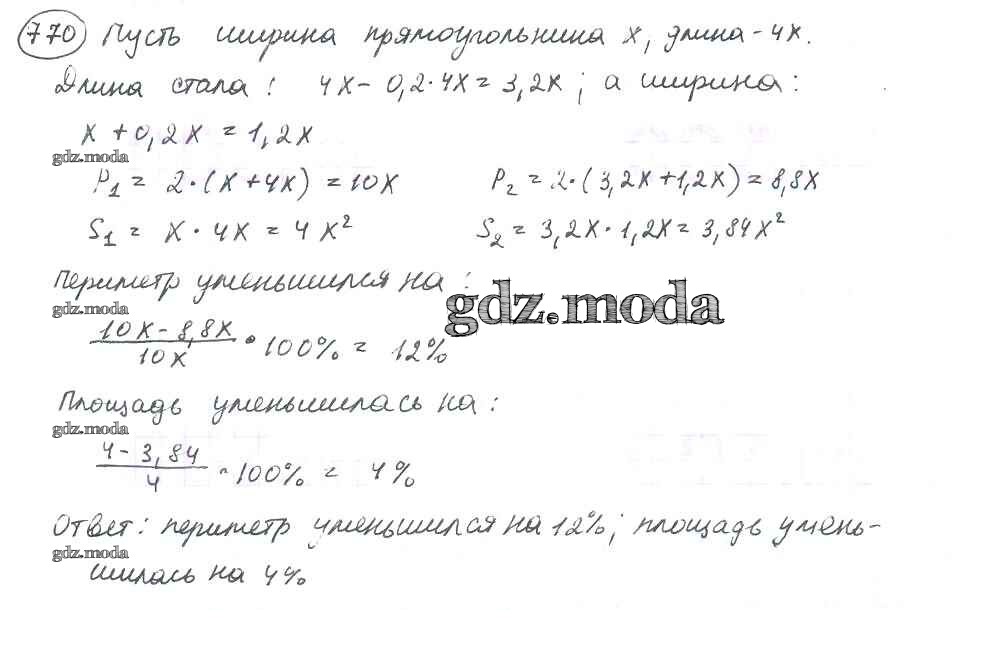 770 Пусть ширина прямоугольника x, длина - 4x.
Длина стала: 4x - 0,2·4x = 3,2x; а ширина:
x + 0,2x = 1,2x
gdz.moda
P₁ = 2·(x+4x) = 10x P₂ = 2·(3,2x+1,2x) = 8,8x
S₁ = x · 4x = 4x² S₂ = 3,2x·1,2x = 3,84x²
Периметр уменьшился на:
gdz.moda
gdz.moda
(10x - 8,8x)/10x · 100% = 12%
Площадь уменьшилась на:
gdz.moda
(4 - 3,84)/4 · 100% = 4%
Ответ: периметр уменьшился на 12%; площадь умень-
gdz.moda
шилась на 4%